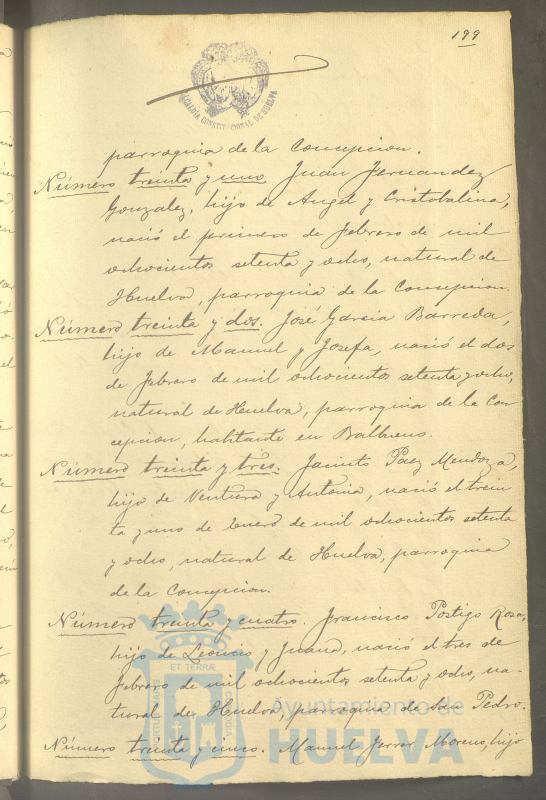 199
ALCALDÍA CONSTITUCIONAL DE HUELVA
parroquia de la Concepcion.
Número treinta y uno Juan Fernandez
Gonzalez, hijo de Angel y Cristobalina,
nació el primero de febrero de mil
ochocientos setenta y ocho, natural de
Huelva, parroquia de la Concepcion.
Número treinta y dos. José Garcia Barreda,
hijo de Manuel y Josefa, nació el dos
de febrero de mil ochocientos setenta y ocho,
natural de Huelva, parroquia de la Con
cepcion, habitante en
Número treinta y tres. Jacinto Paez Mendoza,
hijo de y Antonia, nació el trein
ta y uno de Enero de mil ochocientos setenta
y ocho, natural de Huelva, parroquia
de la Concepcion.
Número treinta y cuatro. Francisco Postigo Rosa,
hijo de Leoncio y Juana, nació el tres de
febrero de mil ochocientos setenta y ocho, na-
tural de Huelva, parroquia de San Pedro.
Número treinta y cinco. Manuel Ferrer Moreno, hijo
ET TERRÆ
Ayuntamiento de
HUELVA